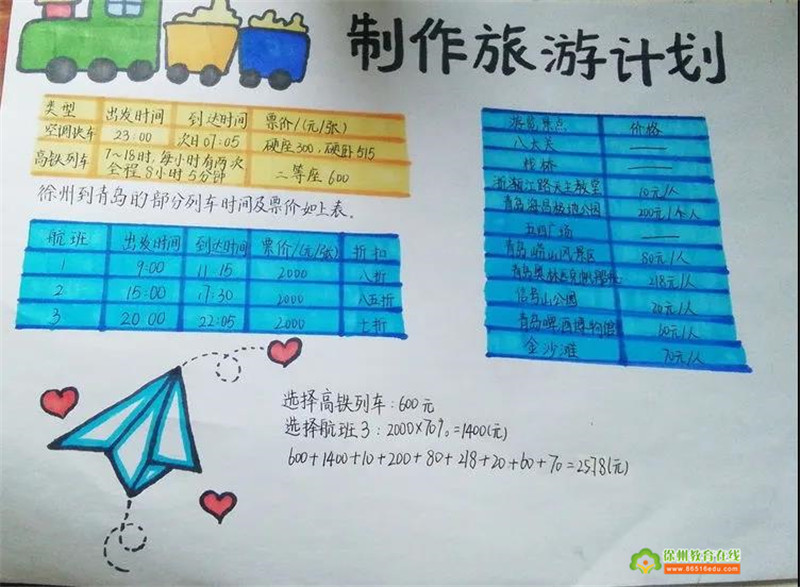 制作旅游计划
类型 出发时间 到达时间 票价/(元/张)
空调快车 23:00 次日07:05 硬座300,硬卧515
高铁列车 7~18时,每小时有两次 全程8小时5分钟 二等座600
徐州到青岛的部分列车时间及票价如上表。
航班 出发时间 到达时间 票价/(元/张) 折扣
1 9:00 11:15 2000 八折
2 15:00 17:30 2000 八五折
3 20:00 22:05 2000 七折
游览景点 价格
八大关 ——
栈桥 ——
浙江路天主教堂 10元/人
青岛海昌极地公园 200元/个人
五四广场 ——
青岛崂山风景区 80元/人
青岛奥林匹克帆船 218元/人
信号山公园 20元/人
青岛啤酒博物馆 60元/人
金沙滩 70元/人
选择高铁列车:600元
选择航班3:2000×70%=1400(元)
600+1400+10+200+80+218+20+60+70=2578(元)
徐州教育在线
www.86516edu.com